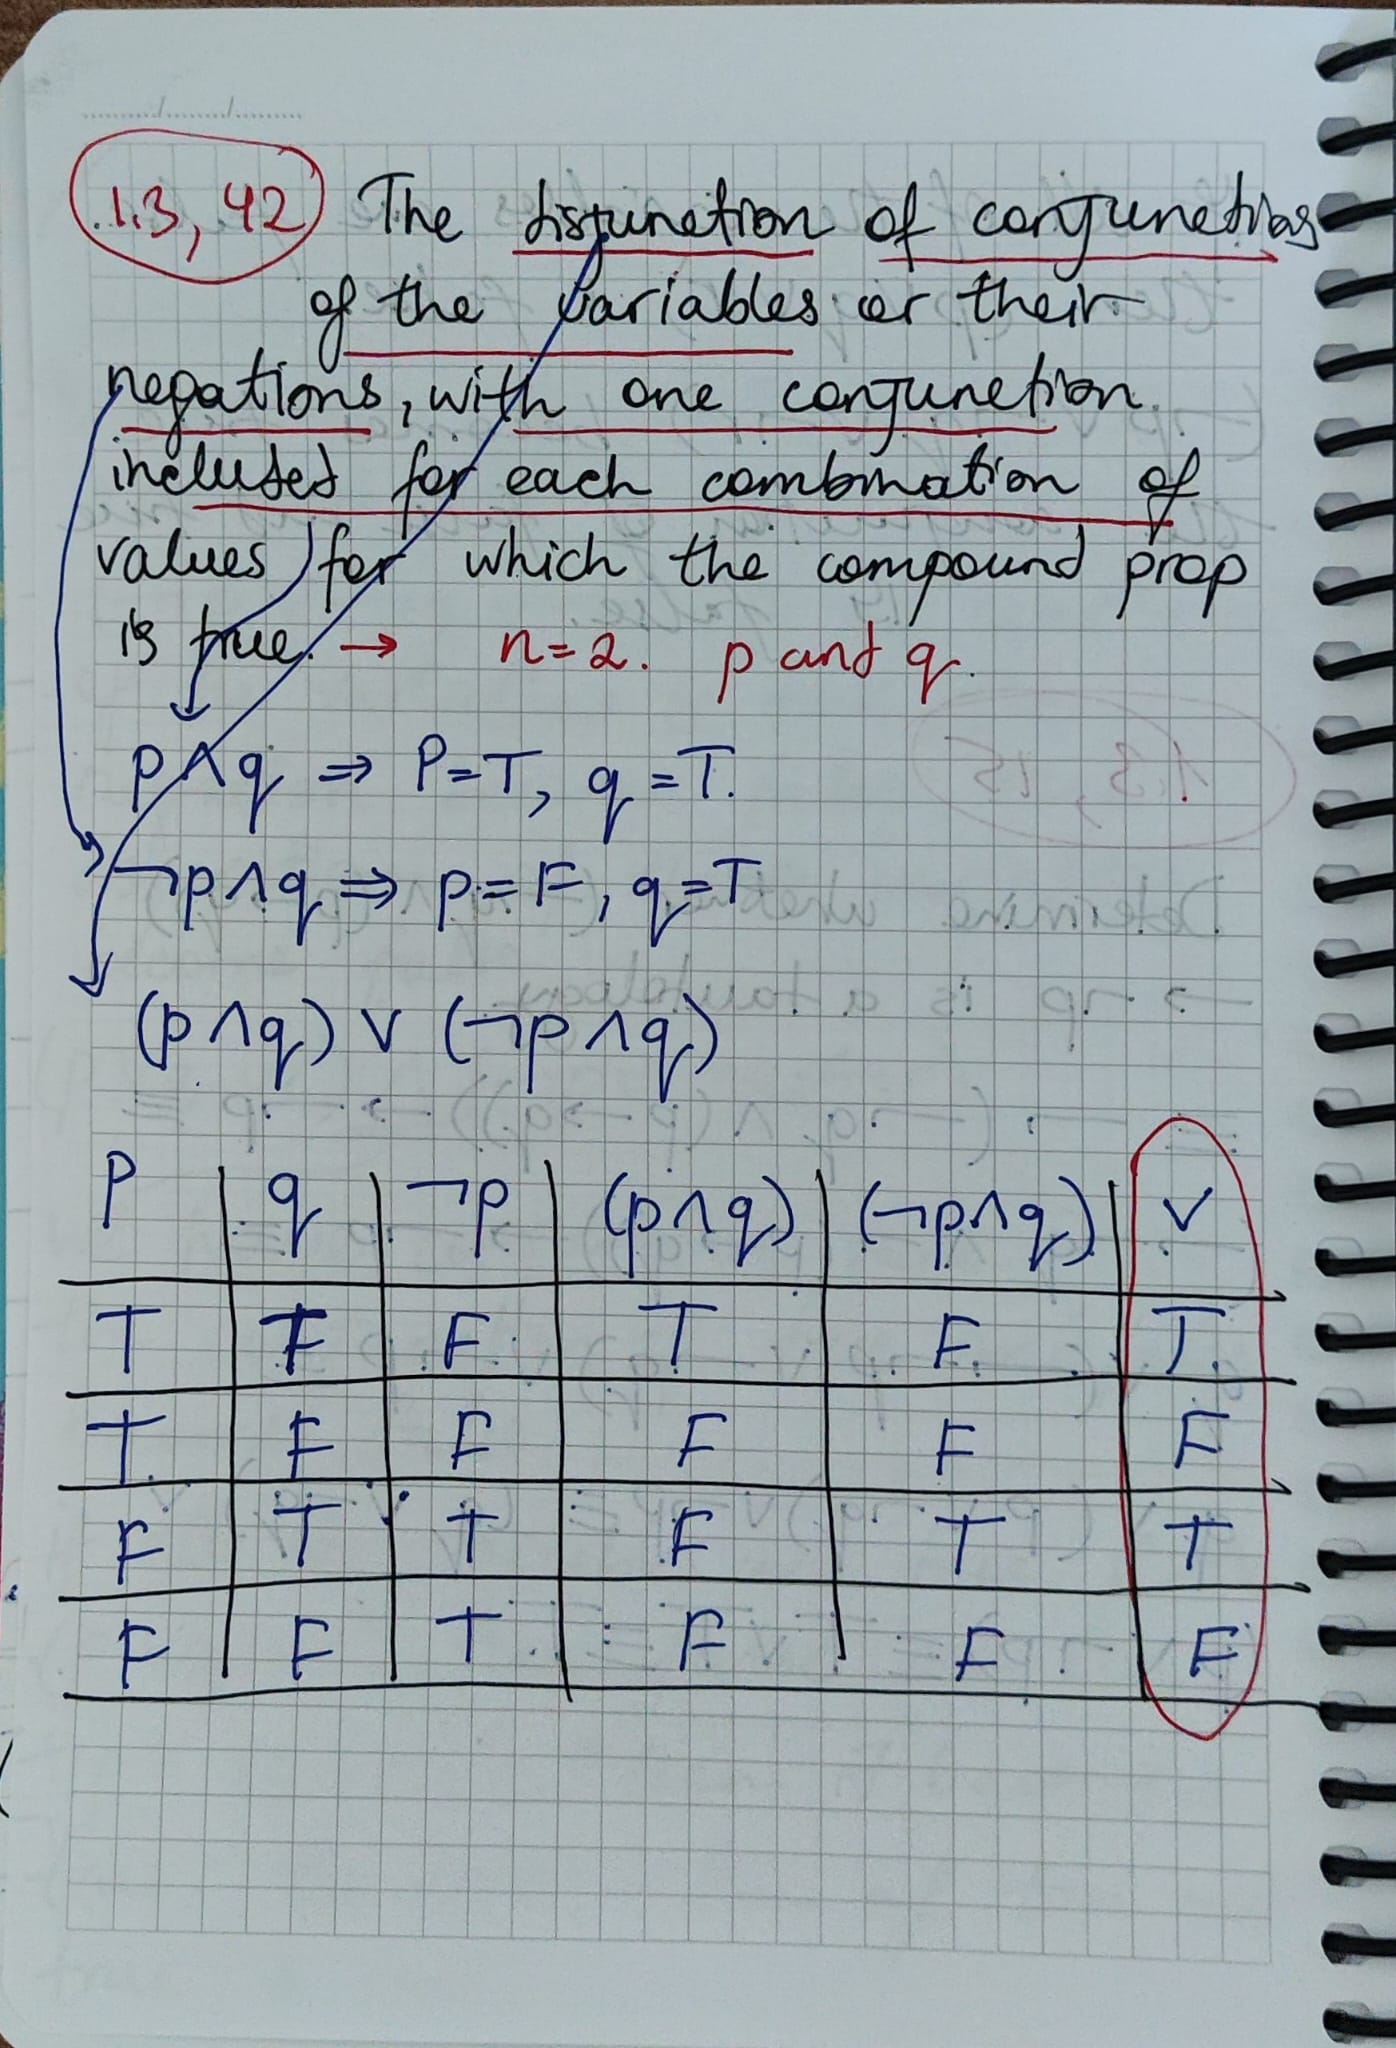 1.3, 42 The disjunction of conjunctions
of the variables or their
negations, with one conjunction
included for each combination of
values for which the compound prop
is true. → n=2. p and q.
p∧q ⇒ P=T, q=T.
¬p∧q ⇒ p=F, q=T
(p∧q) ∨ (¬p∧q)
P q ¬p (p∧q) (¬p∧q) ∨
T F T F T
T F F F F F
F T T F T T
F F T F F F